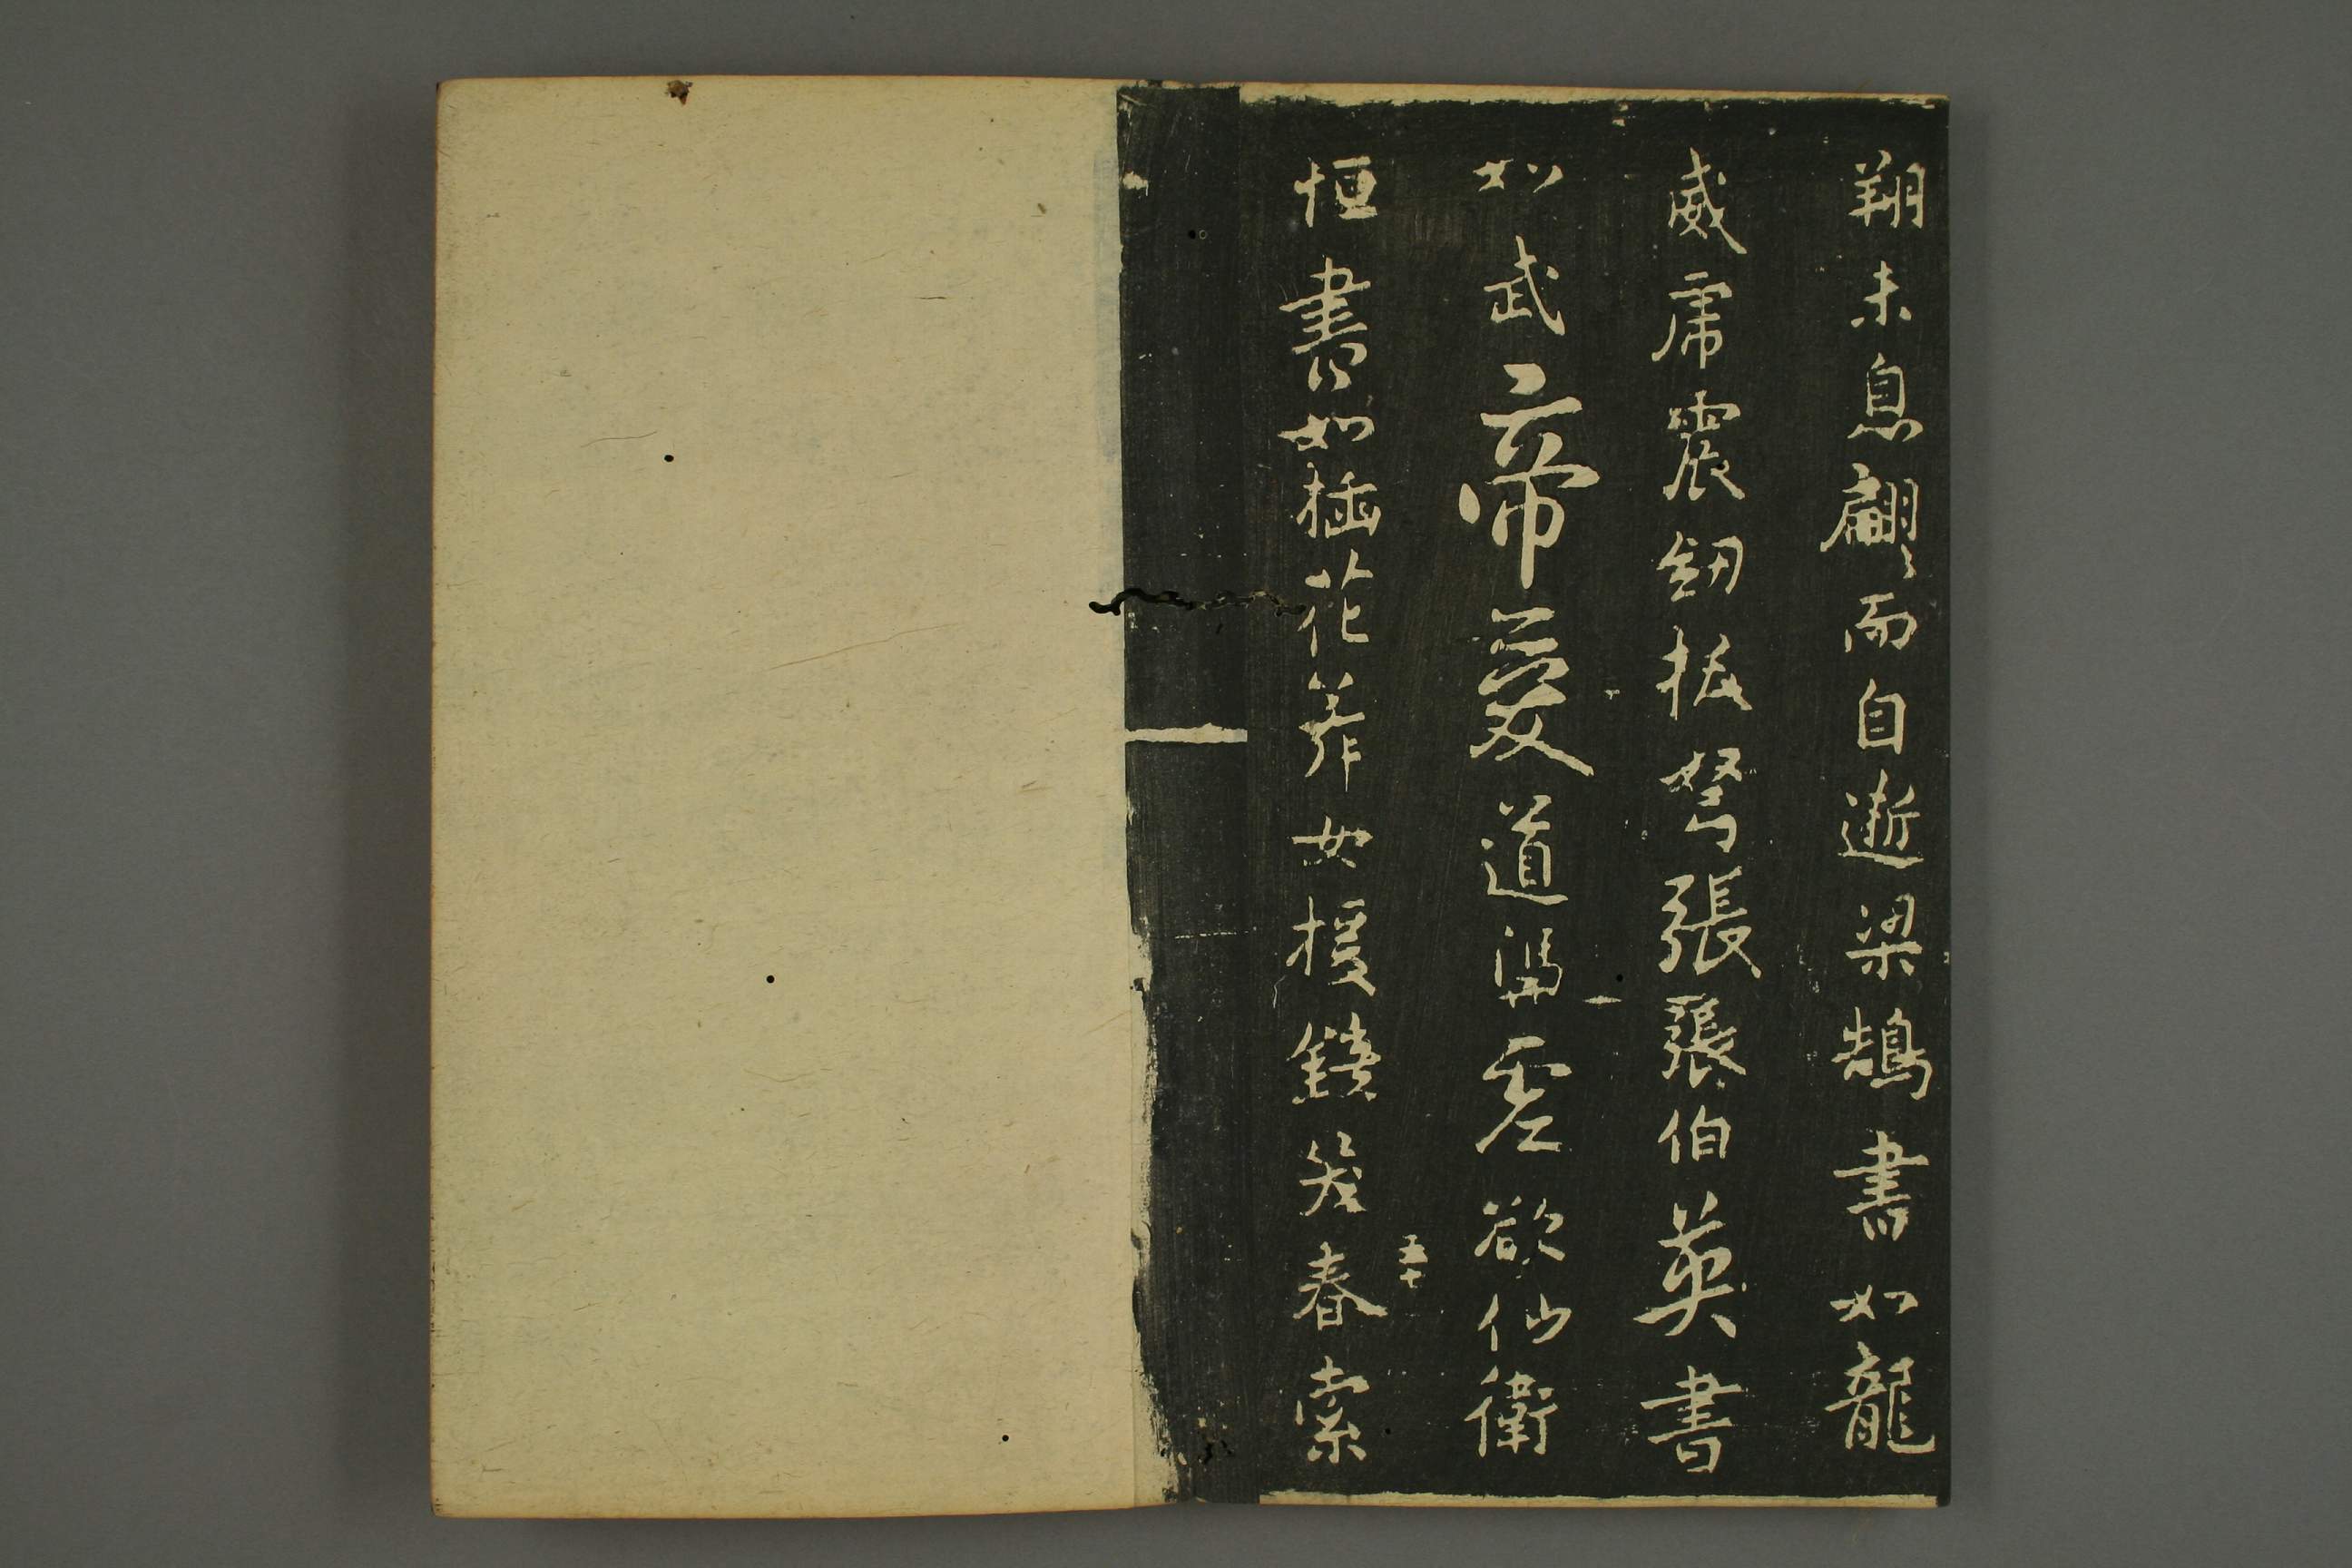 翔未息翩翩而自逝梁鵠書如龍
威虎震劒拔弩張張伯英書
如武帝愛道馮虛欲仙衛
恒書如插花舞女援鏡笑春索
五十